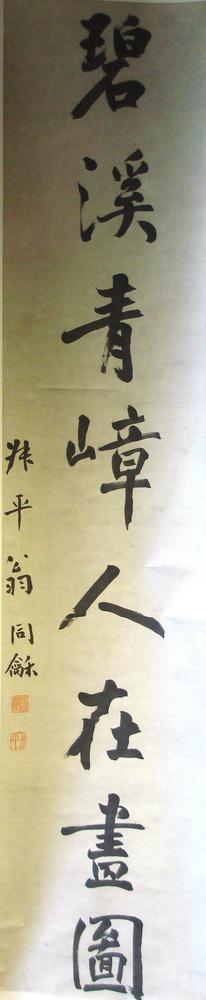 碧溪青嶂人在畫圖
叔平翁同龢